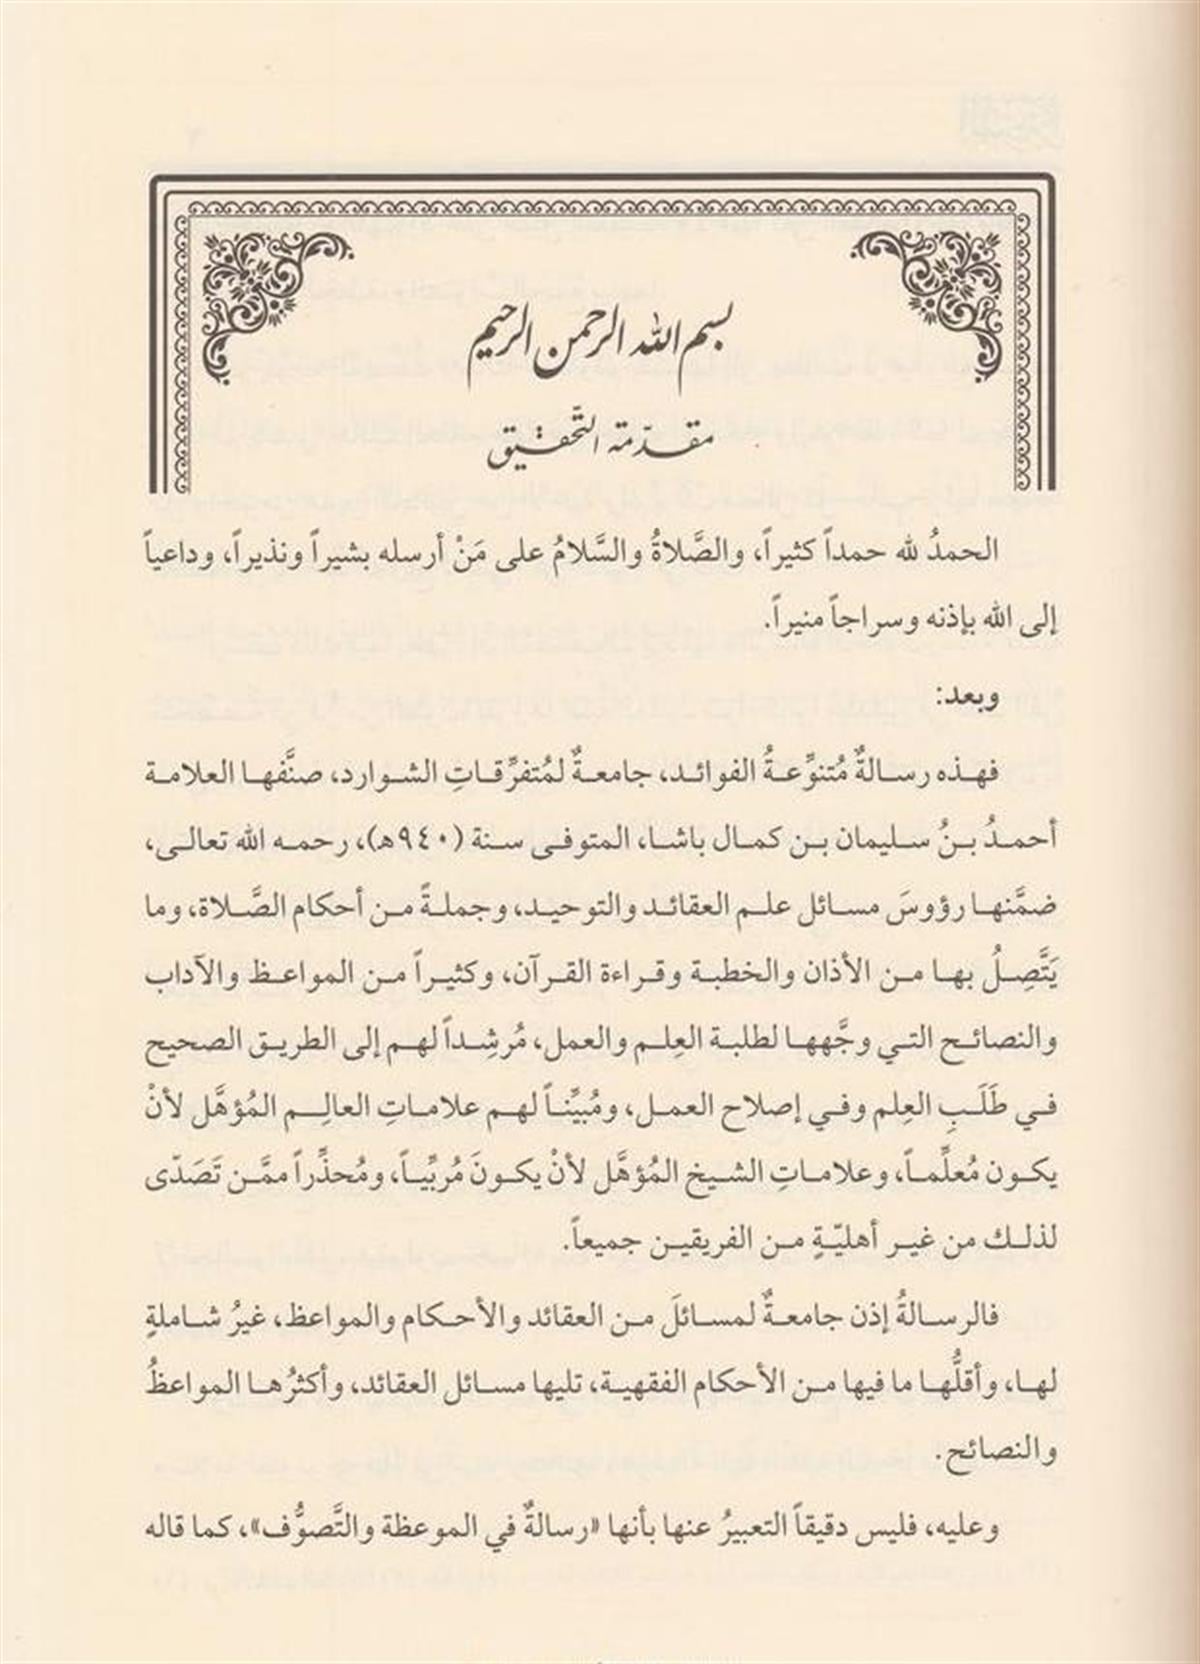 بسم الله الرحمن الرحيم
مقدّمة التّحقيق
الحمدُ لله حمداً كثيراً، والصَّلاةُ والسَّلامُ على مَنْ أرسله بشيراً ونذيراً، وداعياً
إلى الله بإذنه وسراجاً منيراً.
وبعد:
فهذه رسالةٌ مُتنوِّعةُ الفوائد، جامعةٌ لمُتفرِّقاتِ الشوارد، صنَّفها العلامة
أحمدُ بنُ سليمان بن كمال باشا، المتوفى سنة (٩٤٠هـ)، رحمه الله تعالى،
ضمَّنها رؤوسَ مسائل علم العقائد والتوحيد، وجملةً من أحكام الصَّلاة، وما
يَتَّصِلُ بها من الأذان والخطبة وقراءة القرآن، وكثيراً من المواعظ والآداب
والنصائح التي وجَّهها لطلبة العِلم والعمل، مُرشِداً لهم إلى الطريق الصحيح
في طَلَبِ العِلم وفي إصلاح العمل، ومُبيِّناً لهم علاماتِ العالِم المُؤهَّل لأنْ
يكون مُعلِّماً، وعلاماتِ الشيخ المُؤهَّل لأنْ يكونَ مُربِّياً، ومُحذِّراً ممَّن تَصَدّى
لذلك من غير أهليّةٍ من الفريقين جميعاً.
فالرسالةُ إذن جامعةٌ لمسائلَ من العقائد والأحكام والمواعظ، غيرُ شاملةٍ
لها، وأقلُّها ما فيها من الأحكام الفقهية، تليها مسائل العقائد، وأكثرُها المواعظُ
والنصائح.
وعليه، فليس دقيقاً التعبيرُ عنها بأنها «رسالةٌ في الموعظة والتَّصوُّف»، كما قاله